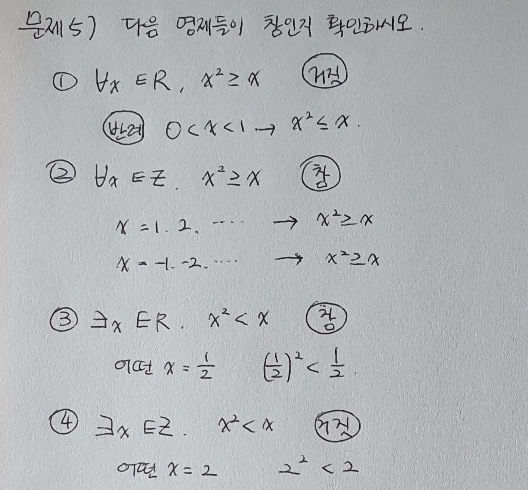 문제5) 다음 명제들이 참인지 확인하시오.
① ∀x ∈ R, x² ≥ x 거짓
반례 0 < x < 1 → x² ≤ x.
② ∀x ∈ Z. x² ≥ x 참
x = 1. 2. ‥‥ → x² ≥ x
x = -1. -2. ‥‥ → x² ≥ x
③ ∃x ∈ R. x² < x 참
어떤 x = 1/2 (1/2)² < 1/2.
④ ∃x ∈ Z. x² < x 거짓
어떤 x = 2 2² < 2